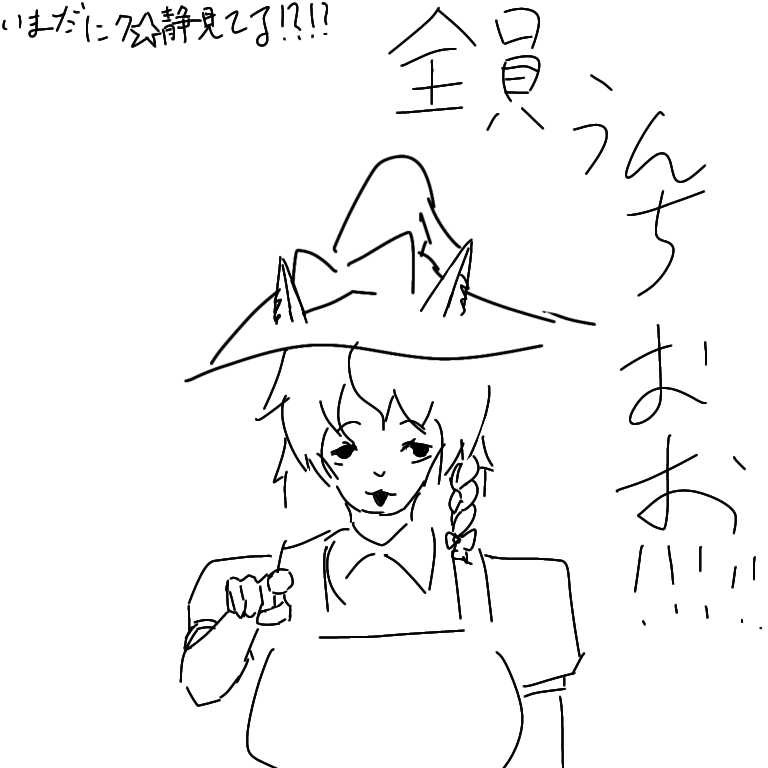 いまだにク☆静見てる!?!?
全員うんちおお!!!!!